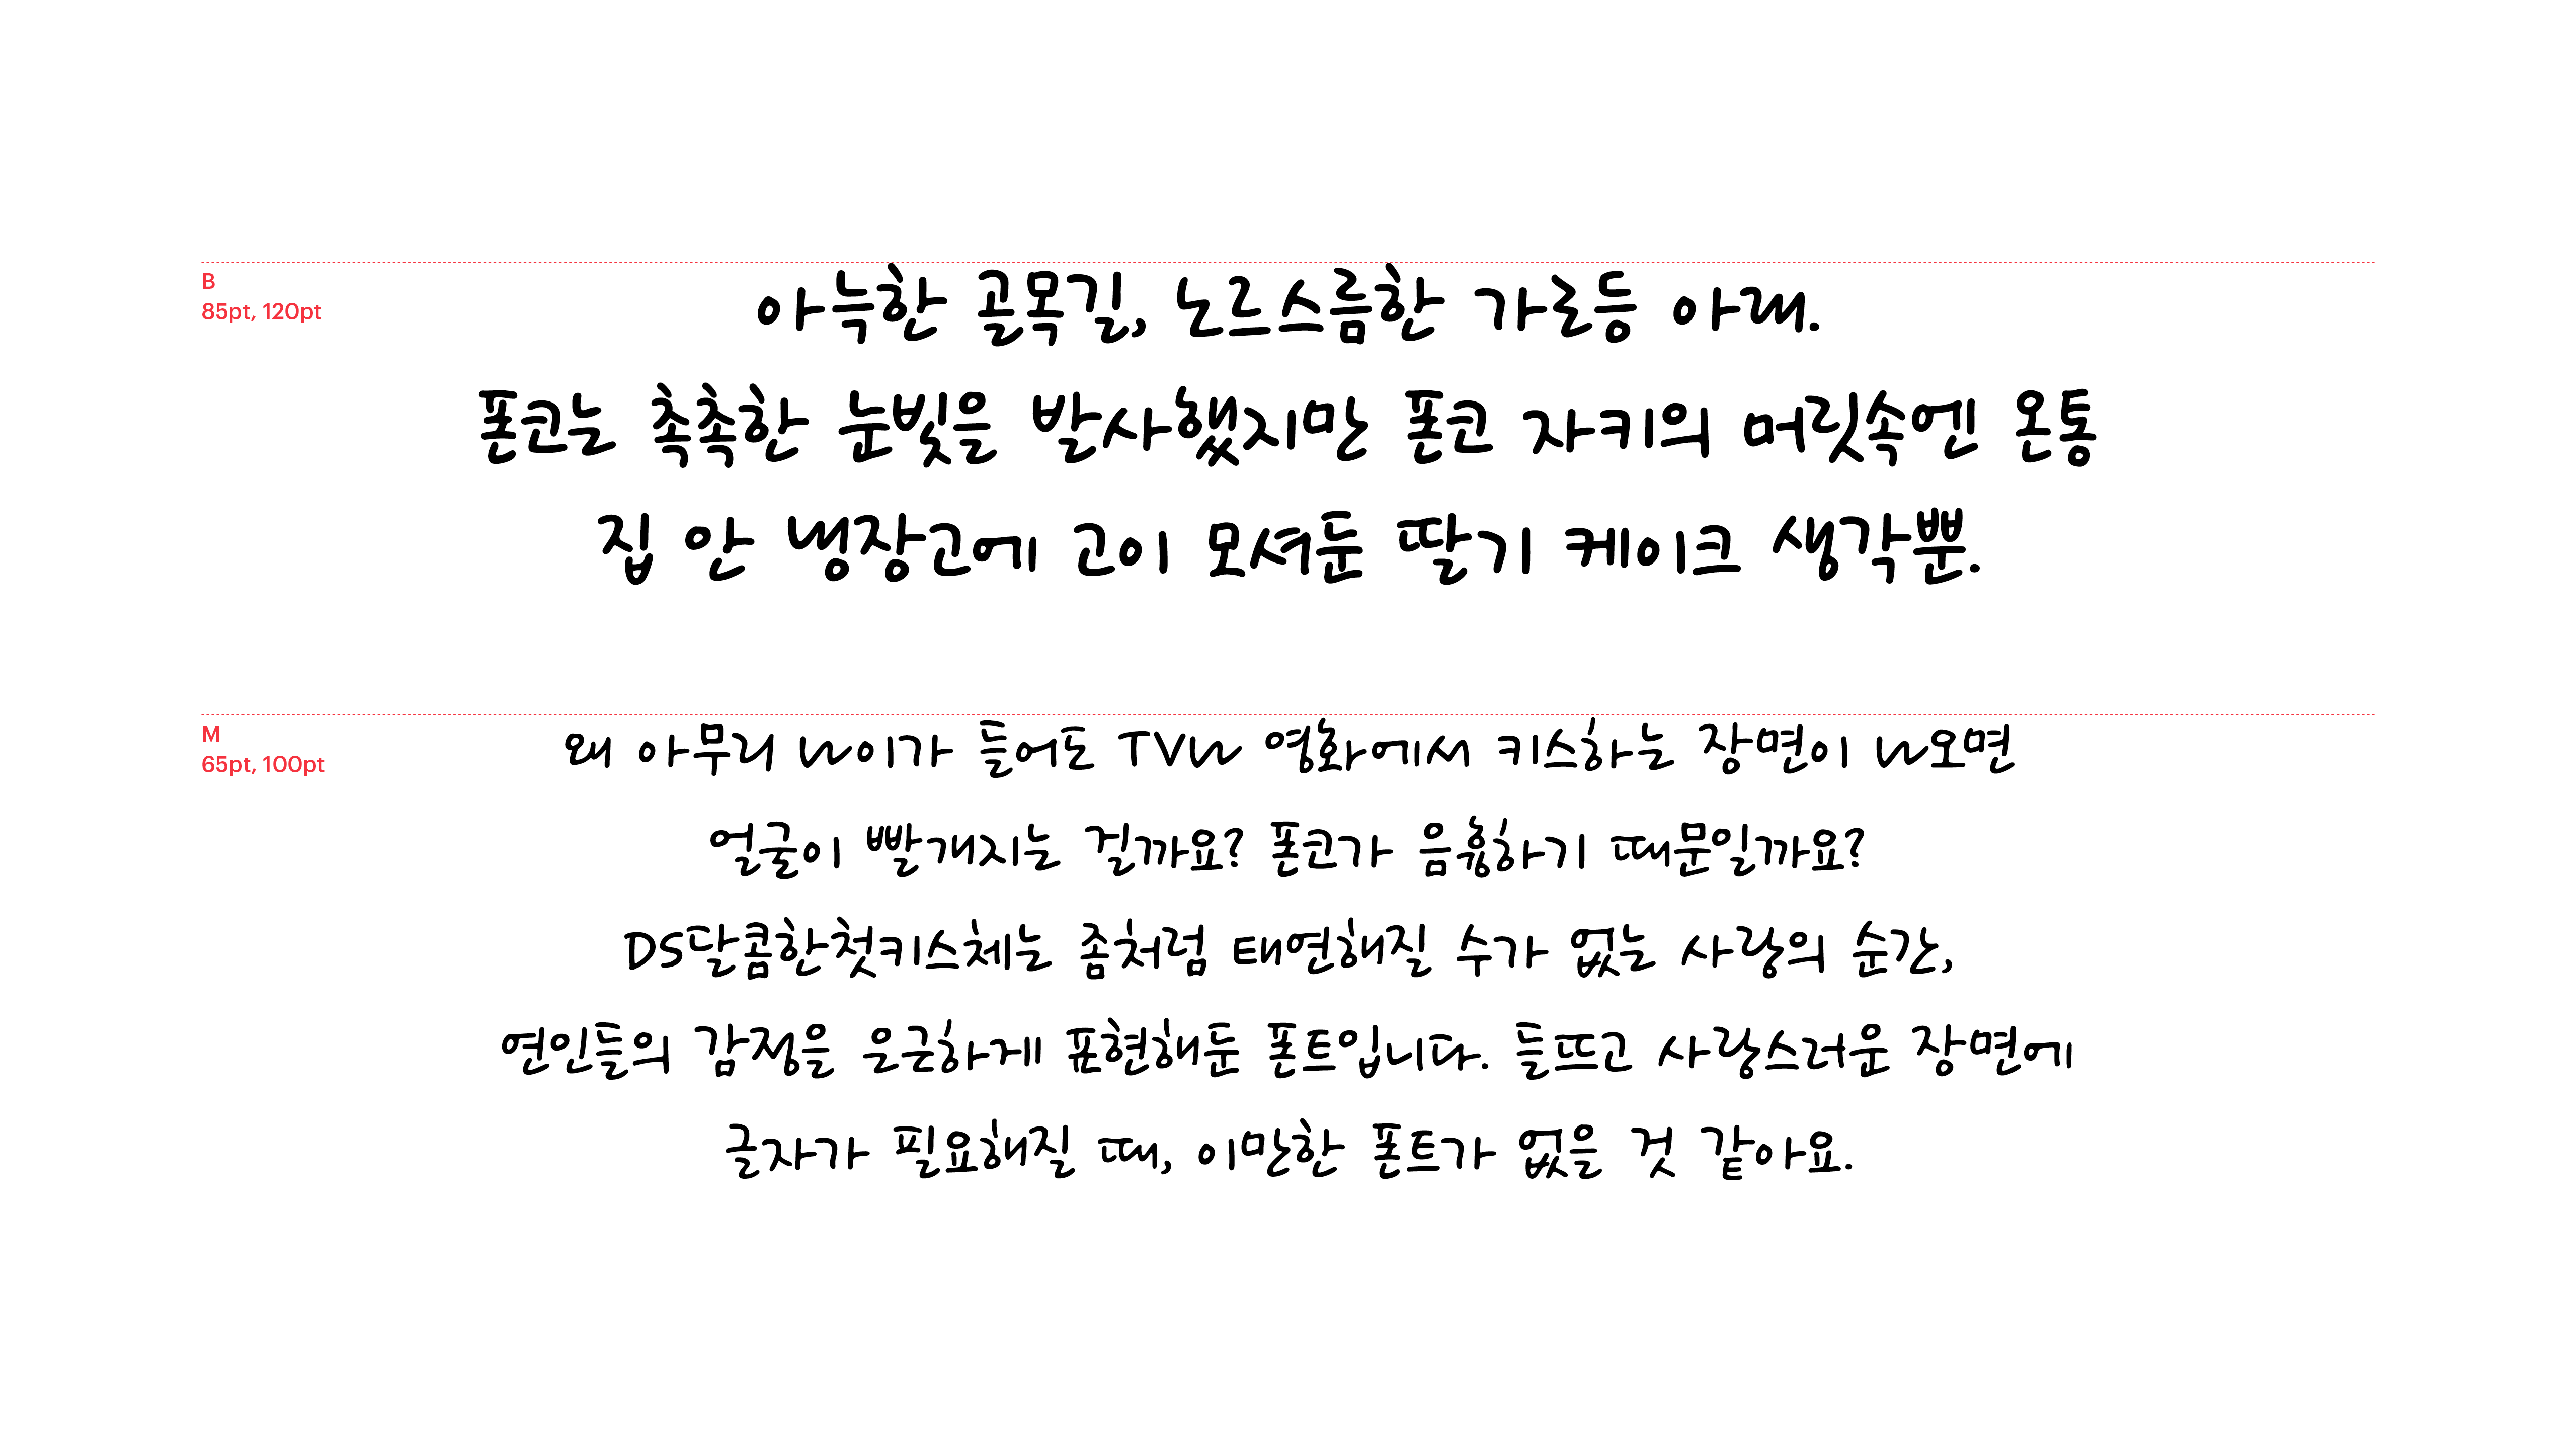 B
85pt, 120pt
아늑한 골목길, 노르스름한 가로등 아래.
폰코는 촉촉한 눈빛을 발사했지만 폰코 자키의 머릿속엔 온통
집 안 냉장고에 고이 모셔둔 딸기 케이크 생각뿐.
M
65pt, 100pt
왜 아무리 나이가 들어도 TV나 영화에서 키스하는 장면이 나오면
얼굴이 빨개지는 걸까요? 폰코가 음흉하기 때문일까요?
DS달콤한첫키스체는 좀처럼 태연해질 수가 없는 사랑의 순간,
연인들의 감정을 은근하게 표현해둔 폰트입니다. 들뜨고 사랑스러운 장면에
글자가 필요해질 때, 이만한 폰트가 없을 것 같아요.